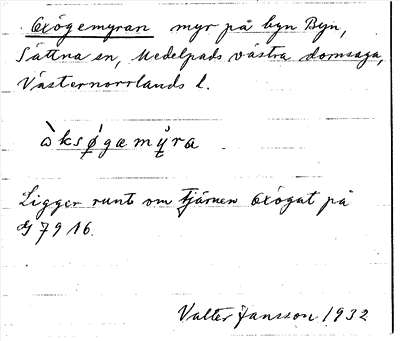 Oxögemyran myr på byn Byn,
Sättna sn, Medelpads västra domsaga,
Västernorrlands l.
Ligger runt om tjärnen Oxögat på
G 7916.
Valter Jansson 1932